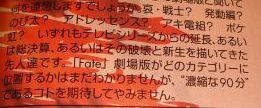 を連想しますでしょうか。哀・戦士? 発動篇?
のび太? アドレッセンス? アキ電組? ポケ
虹? いずれもテレビシリーズからの延長、あるい
は総決算、あるいはその破壊と新生を描いてきた
先人達です。「Fate」劇場版がどのカテゴリーに
位置するかはまだわかりませんが、“濃縮な90分”
であるコトを期待してやみません。